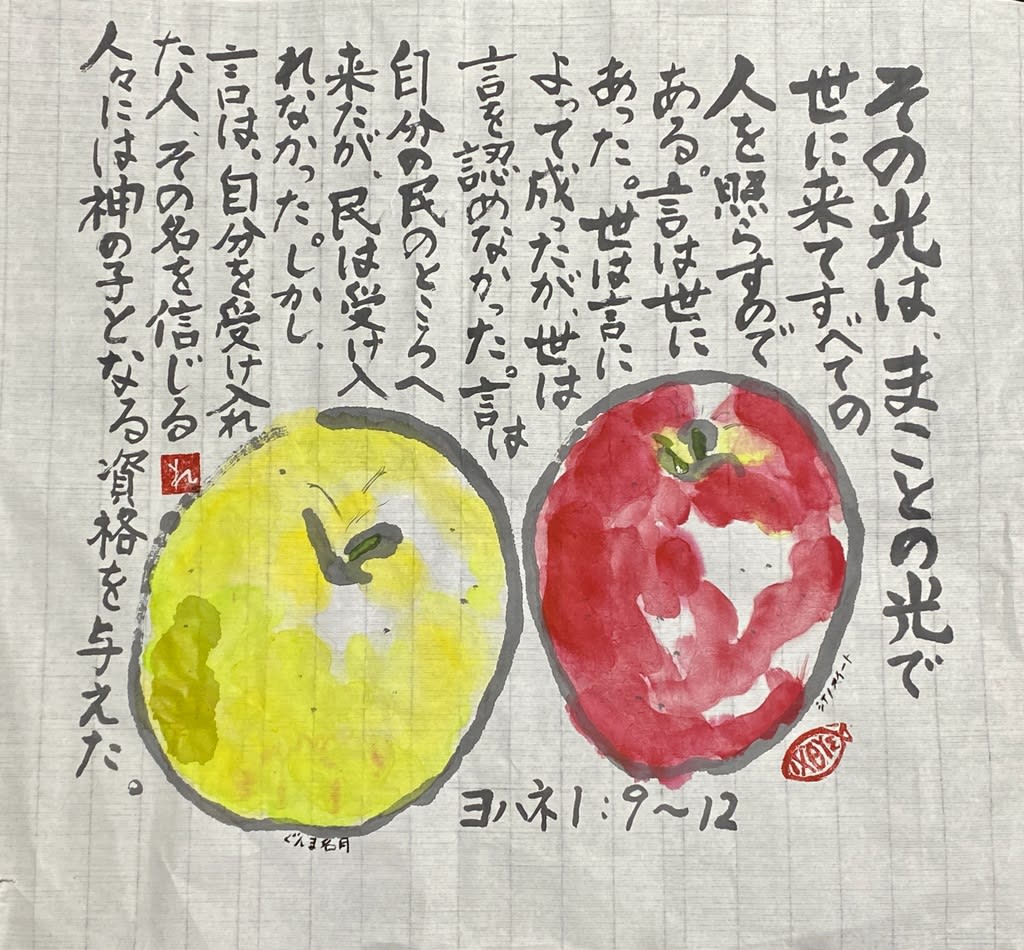 その光は、まことの光で
世に来てすべての
人を照らすので
ある。言は世に
あった。世は言に
よって成ったが、世は
言を認めなかった。言は
自分の民のところへ
来たが、民は受け入
れなかった。しかし、
言は、自分を受け入れ
た人、その名を信じる
人々には神の子となる資格を与えた。
ヨハネ1:9〜12
シナノスイート
ぐんま名月
れ